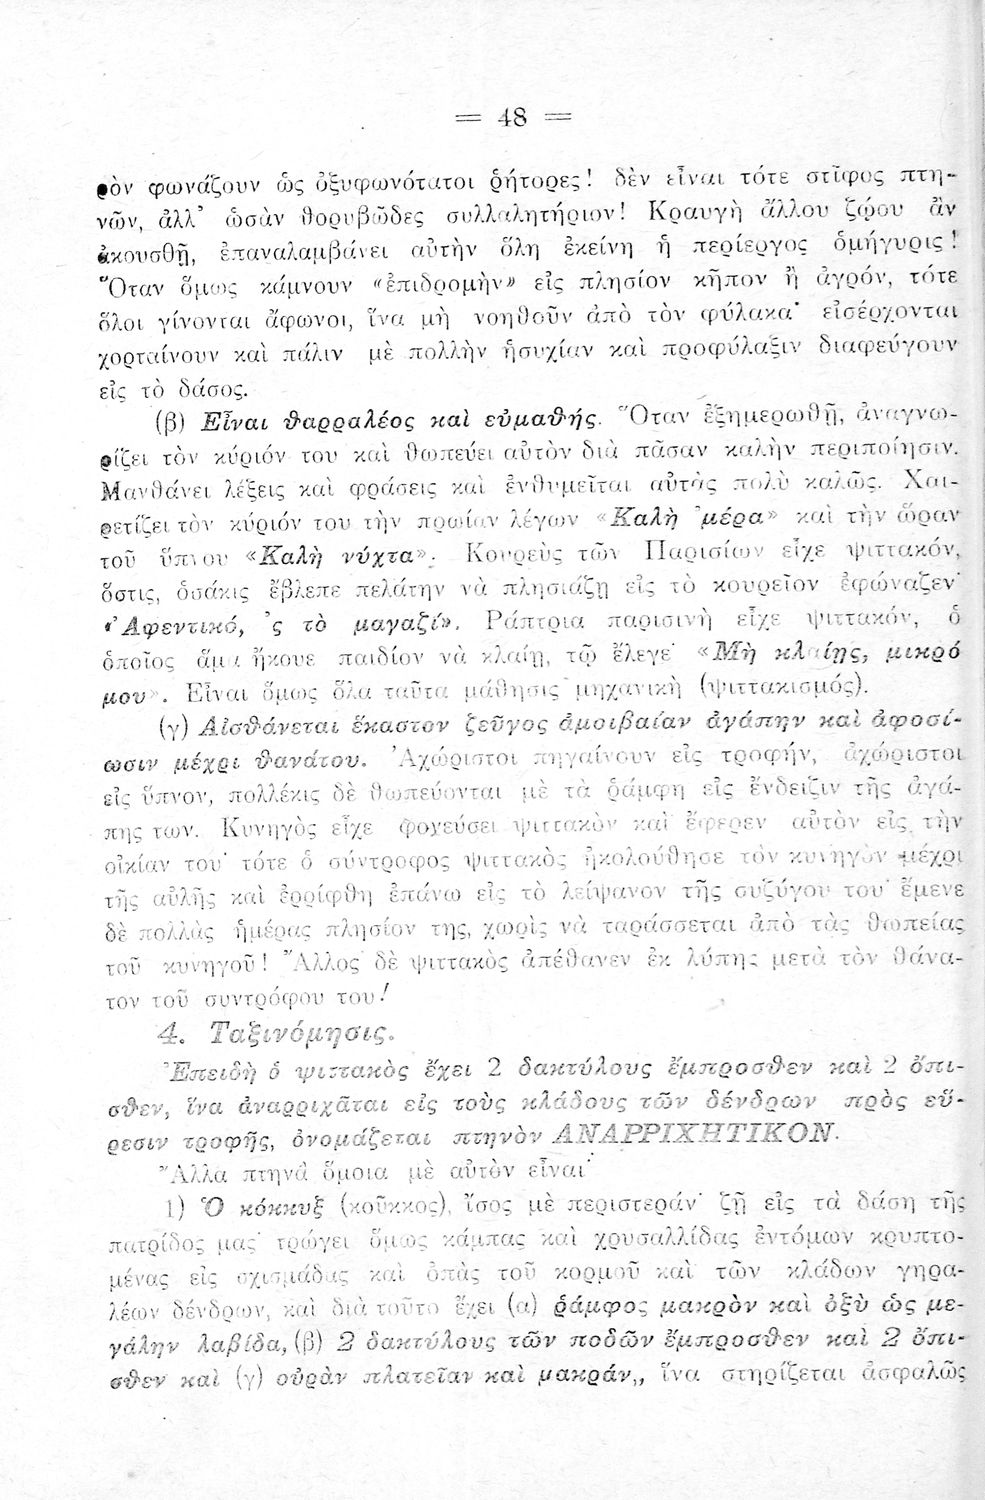 = 48 =
ρὸν φωνάζουν ὡς ὀξυφωνότατοι ῥήτορες! δὲν εἶναι τότε στῖφος πτη-
νῶν, ἀλλ’ ὡσὰν θορυβῶδες συλλαλητήριον! Κραυγὴ ἄλλου ζῴου ἂν
ἀκουσθῇ, ἐπαναλαμβάνει αὐτὴν ὅλη ἐκείνη ἡ περίεργος ὁμήγυρις!
Ὅταν ὅμως κάμνουν «ἐπιδρομὴν» εἰς πλησίον κῆπον ἢ ἀγρόν, τότε
ὅλοι γίνονται ἄφωνοι, ἵνα μὴ νοηθοῦν ἀπὸ τὸν φύλακα· εἰσέρχονται
χορταίνουν καὶ πάλιν μὲ πολλὴν ἡσυχίαν καὶ προφύλαξιν διαφεύγουν
εἰς τὸ δάσος.
(β) Εἶναι θαρραλέος καὶ εὐμαθής. Ὅταν ἐξημερωθῇ, ἀναγνω-
ρίζει τὸν κύριόν του καὶ θωπεύει αὐτὸν διὰ πᾶσαν καλὴν περιποίησιν.
Μανθάνει λέξεις καὶ φράσεις καὶ ἐνθυμεῖται αὐτὰς πολὺ καλῶς. Χαι-
ρετίζει τὸν κύριόν του τὴν πρωίαν λέγων «Καλὴ ’μέρα» καὶ τὴν ὥραν
τοῦ ὕπνου «Καλὴ νύχτα». Κουρεὺς τῶν Παρισίων εἶχε ψιττακόν,
ὅστις, ὁσάκις ἔβλεπε πελάτην νὰ πλησιάζῃ εἰς τὸ κουρεῖον ἐφώναζεν·
«’Αφεντικό, ’ς τὸ μαγαζί». Ράπτρια παρισινὴ εἶχε ψιττακόν, ὁ
ὁποῖος ἅμα ἤκουε παιδίον νὰ κλαίῃ, τῷ ἔλεγε· «Μὴ κλαίῃς, μικρό
μου». Εἶναι ὅμως ὅλα ταῦτα μάθησις μηχανικὴ (ψιττακισμός).
(γ) Αἰσθάνεται ἕκαστον ζεῦγος ἀμοιβαίαν ἀγάπην καὶ ἀφοσί-
ωσιν μέχρι θανάτου. Ἀχώριστοι πηγαίνουν εἰς τροφήν, ἀχώριστοι
εἰς ὕπνον, πολλέκις δὲ θωπεύονται μὲ τὰ ῥάμφη εἰς ἔνδειξιν τῆς ἀγά-
πης των. Κυνηγὸς εἶχε φονεύσει ψιττακὸν καὶ ἔφερεν αὐτὸν εἰς τὴν
οἰκίαν του· τότε ὁ σύντροφος ψιττακὸς ἠκολούθησε τὸν κυνηγὸν μέχρι
τῆς αὐλῆς καὶ ἐρρίφθη ἐπάνω εἰς τὸ λείψανον τῆς συζύγου του· ἔμενε
δὲ πολλὰς ἡμέρας πλησίον της, χωρὶς νὰ ταράσσεται ἀπὸ τὰς θωπείας
τοῦ κυνηγοῦ! Ἄλλος δὲ ψιττακὸς ἀπέθανεν ἐκ λύπης μετὰ τὸν θάνα-
τον τοῦ συντρόφου του!
4. Ταξινόμησις.
Ἐπειδὴ ὁ ψιττακὸς ἔχει 2 δακτύλους ἔμπροσθεν καὶ 2 ὄπι-
σθεν, ἵνα ἀναρριχᾶται εἰς τοὺς κλάδους τῶν δένδρων πρὸς εὕ-
ρεσιν τροφῆς, ὀνομάζεται πτηνὸν ΑΝΑΡΡΙΧΗΤΙΚΟΝ.
Ἄλλα πτηνὰ ὅμοια μὲ αὐτὸν εἶναι·
1) Ὁ κόκκυξ (κοῦκκος), ἴσος μὲ περιστεράν· ζῇ εἰς τὰ δάση τῆς
πατρίδος μας· τρώγει ὅμως κάμπας καὶ χρυσαλλίδας ἐντόμων κρυπτο-
μένας εἰς σχισμάδας καὶ ὀπὰς τοῦ κορμοῦ καὶ τῶν κλάδων γηρα-
λέων δένδρων, καὶ διὰ τοῦτο ἔχει (α) ῥάμφος μακρὸν καὶ ὀξὺ ὡς με-
γάλην λαβίδα, (β) 2 δακτύλους τῶν ποδῶν ἔμπροσθεν καὶ 2 ὄπι-
σθεν καὶ (γ) οὐρὰν πλατεῖαν καὶ μακράν,, ἵνα στηρίζεται ἀσφαλῶς